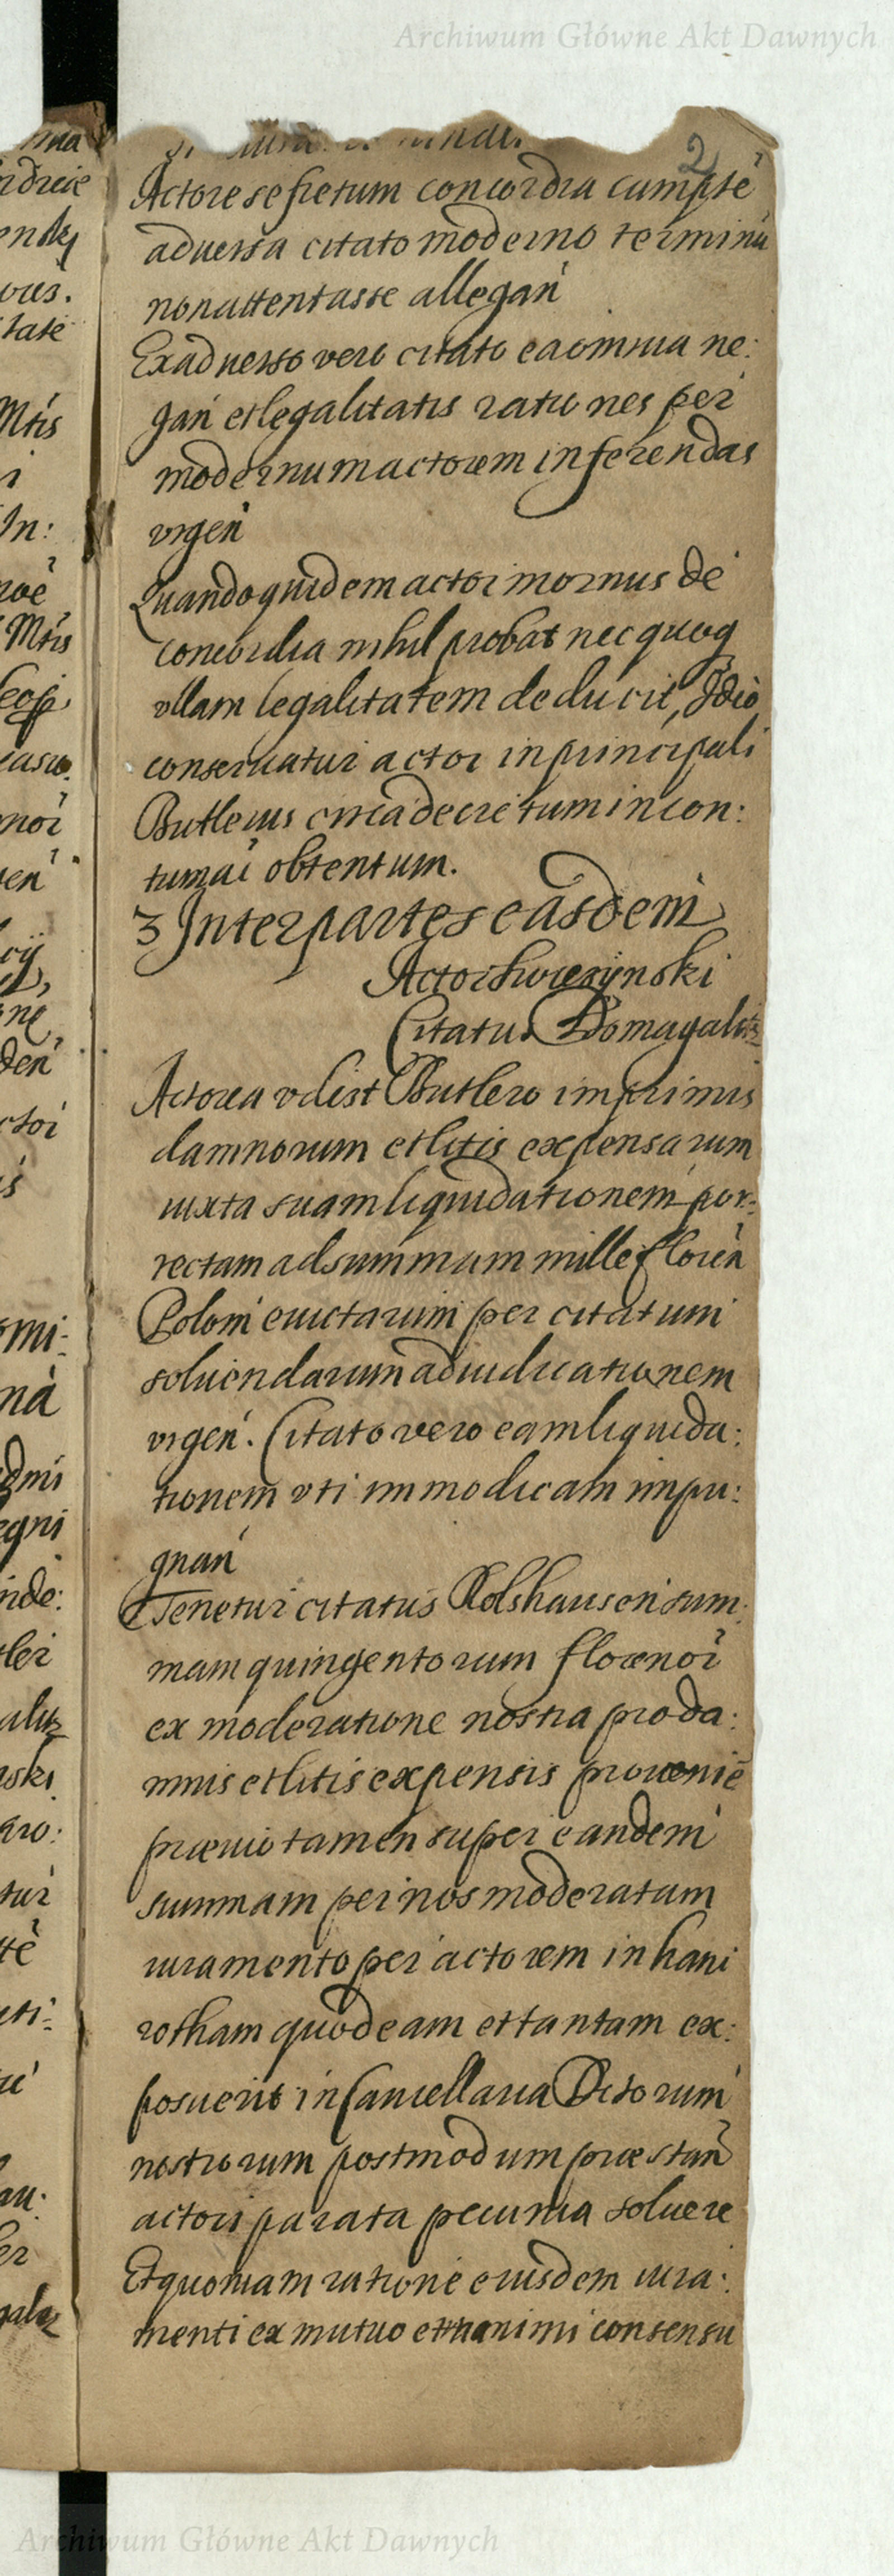 Archiwum Główne Akt Dawnych
2
Actore se fretum concordia cum pte
aduersa citato moderno terminu
non attentasse allegan
Ex aduerso vero citato ea omnia ne:
gan et legalitatis rationes per
modernum actorem inferendas
vrgen
Quandoquidem actor mornus de
concordia nihil probat nec quoq
vllam legalitatem deducit, Ideo
conseruatur actor in principali
Butlerus circa decretum in con:
tumai obtentum.
3 Inter partes easdem
Actor Swierzynski
Citatus Domagalitz
Actorea vdlist Butlero imprimis
damnorum et litis expensarum
iuxta suam liquidationem por:
rectam ad summam mille floren
Poloni euictarum per citatum
soluendarum adiudicationem
vrgen. Citato vero eam liquida:
tionem vti immodicam impu:
gnan
Tenetur citatus Rolshausen sum:
mam quingentorum florenor
ex moderatione nostra pro da:
mnis et litis expensis prouenie
præuio tamen super eandem
summam per nos moderatam
iuramento per actorem in hanc
rotham quod eam et tantam ex:
posuerit in Cancellaria Actorum
nostrorum postmodum præstan
actori parata pecunia soluere
Et quoniam ratione eiusdem iura:
menti ex mutuo et unanimi consensu
mna
Mtis
In:
Mtis
omi:
ná
egni
inde:
ski
Archiwum Główne Akt Dawnych